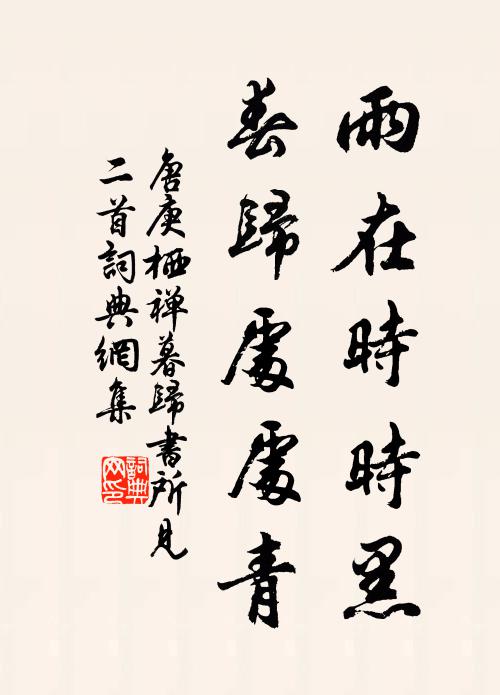 雨在時時黑
春歸處處青
唐庚栖禅暮歸書所見
二首詞典網集
詞典
网印